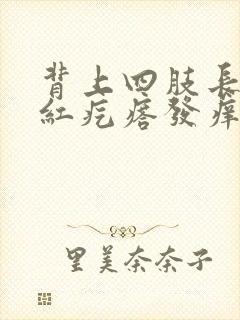 背上四肢長
紅疙瘩發痒
里美奈奈子